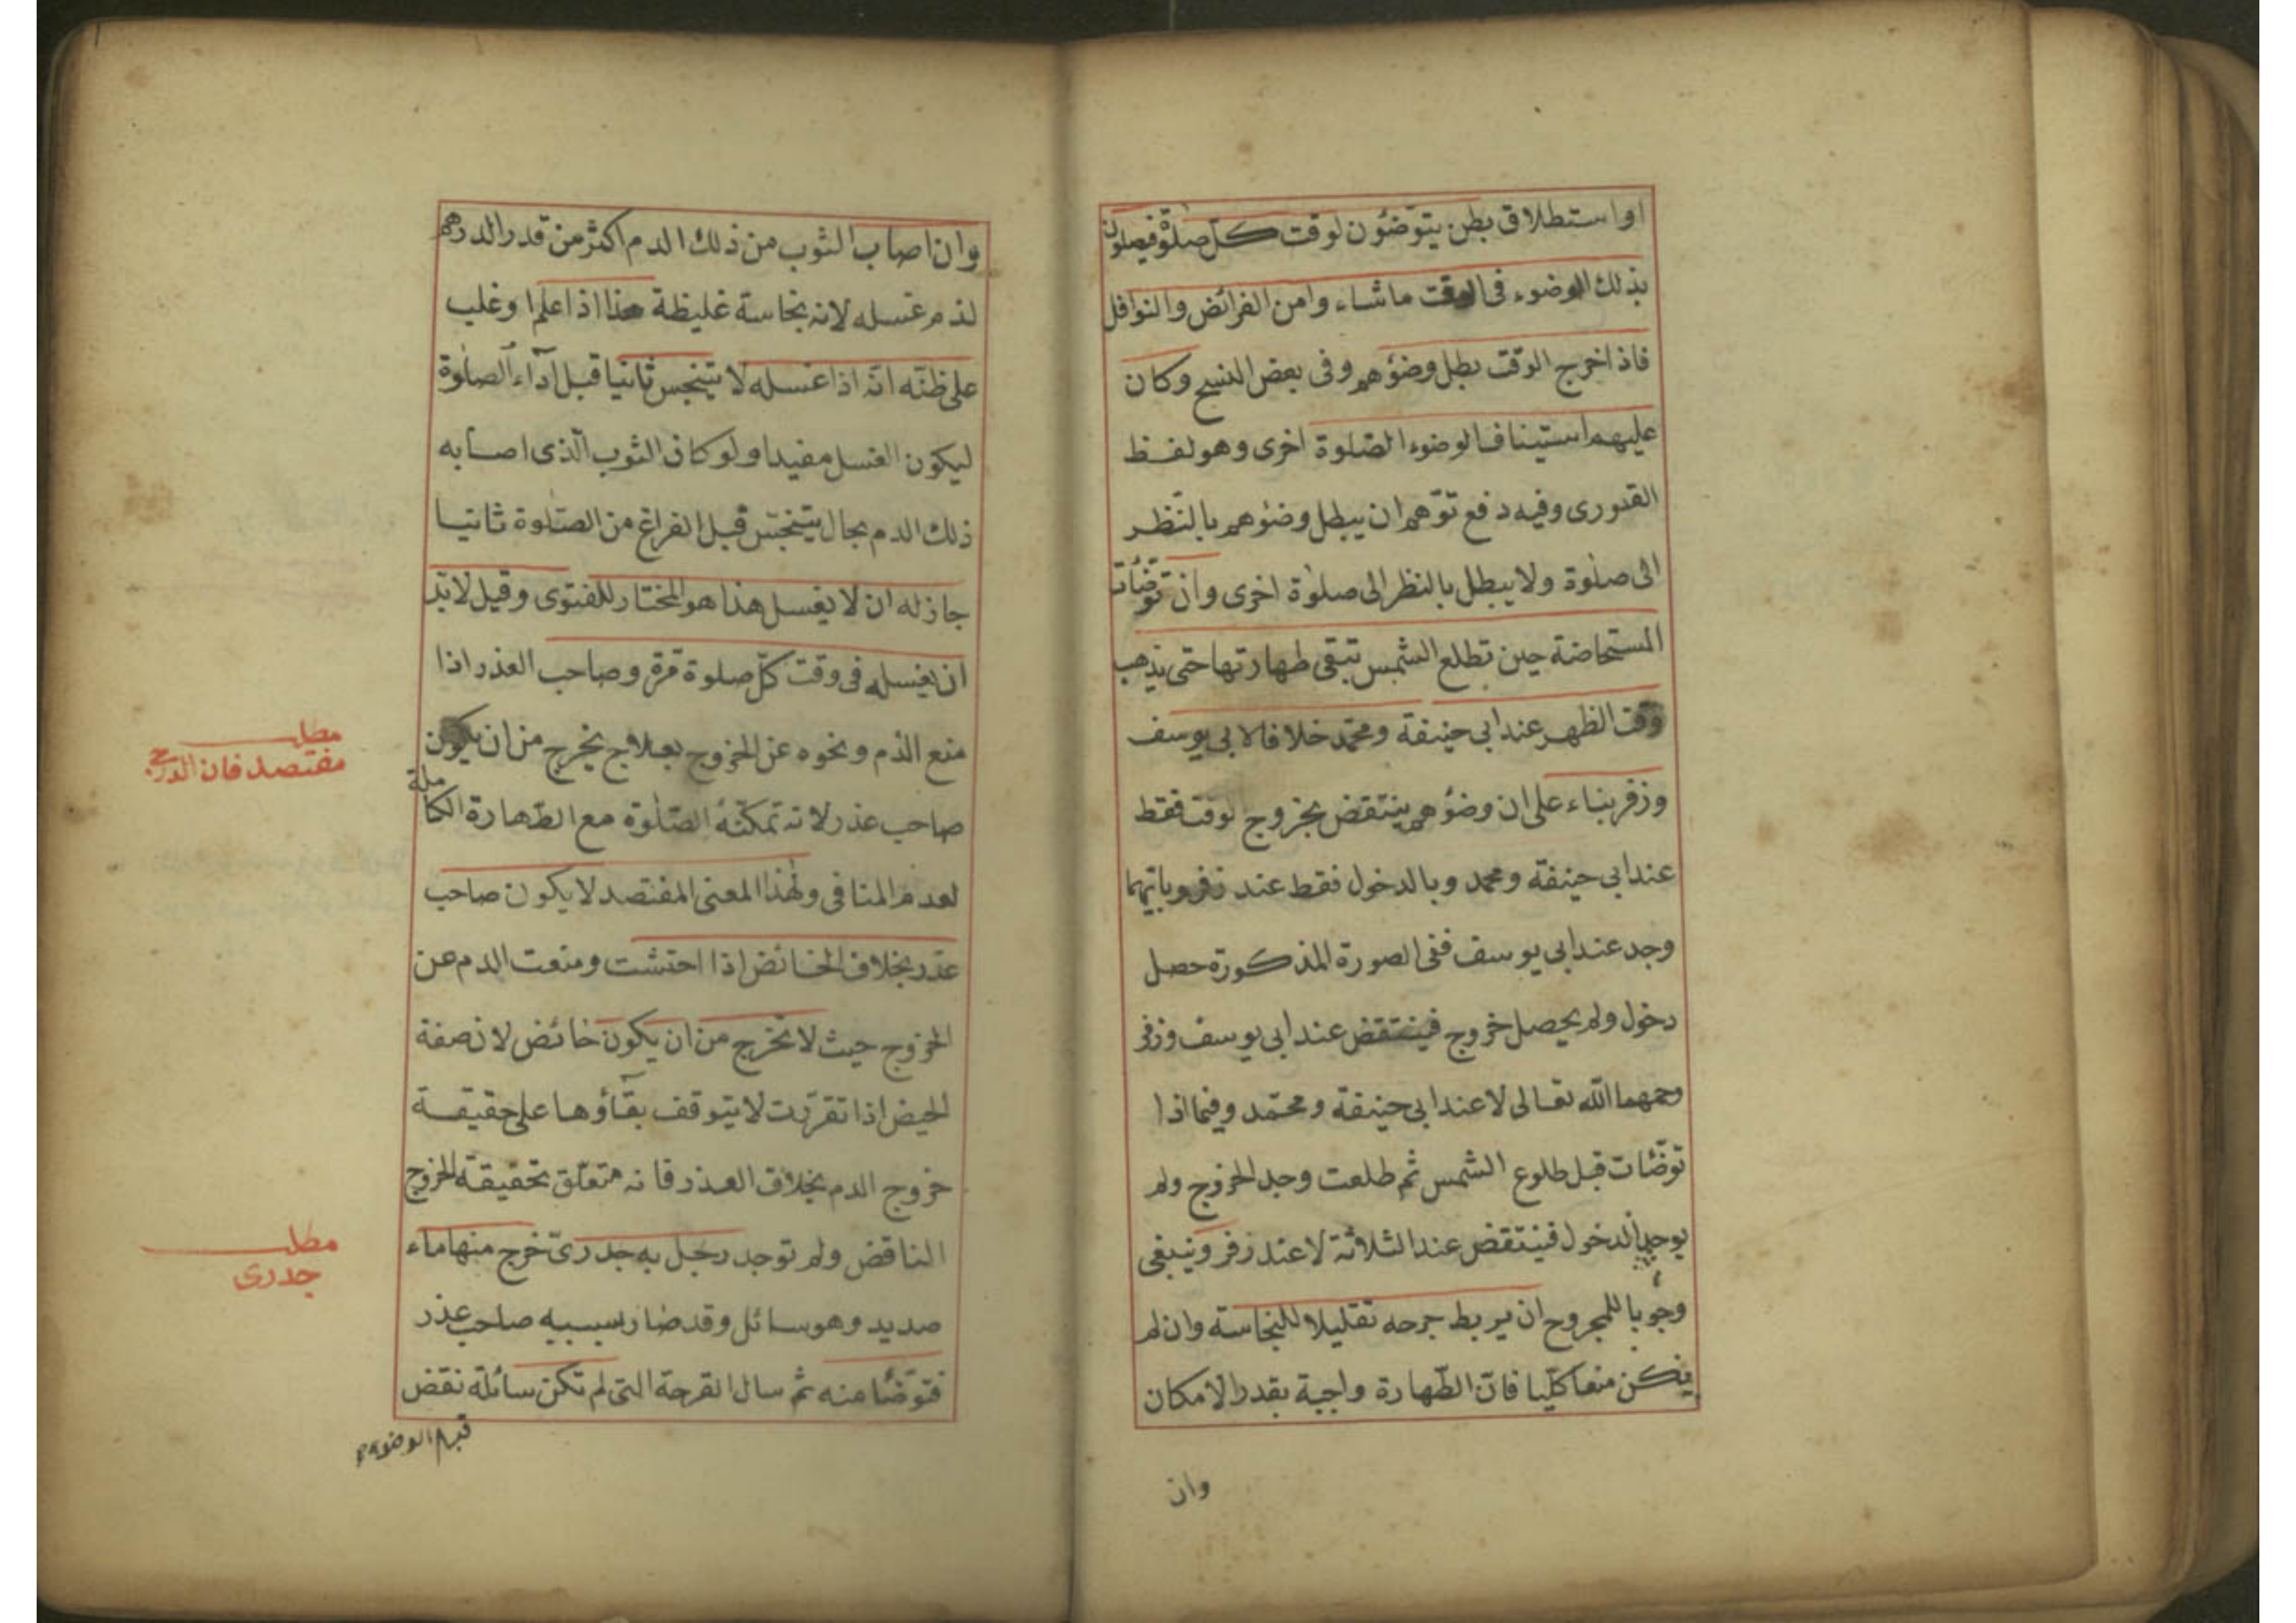 اواستطلاق بطن يتوضؤن لوقت كل صلوة فيصلون
بذلك الوضوء فى الوقت ماشاء وامن الفرائض والنوافل
فاذاخرج الوقت بطل وضؤهم وفى بعض النسخ وكان
عليهم استيناف الوضوء الصلوة اخرى وهولفظ
القدورى وفيه دفع توهم ان يبطل وضؤهم بالنظر
الى صلوة ولايبطل بالنظر الى صلوة اخرى وان توضأت
المستحاضة حين تطلع الشمس تبقى طهارتها حتى يذهب
وقت الظهر عند ابى حنيفة ومحمد خلافا لابى يوسف
وزفر بناء على ان وضؤهم ينتقض بخروج لوقت فقط
عند ابى حنيفة ومحمد وبالدخول فقط عند زفر وبايهما
وجد عند ابى يوسف ففى الصورة المذكورة حصل
دخول ولم يحصل خروج فينتقض عند ابى يوسف وزفر
رحمهما الله تعالى لا عند ابى حنيفة ومحمد وفيما اذا
توضأت قبل طلوع الشمس ثم طلعت وجد الخروج ولم
يوجد الدخول فينتقض عند الثلاثة لا عند زفر وينبغى
وجوبا للمجروح ان يربط جرحه تقليلا للنجاسة وان لم
يمكن منعا كليا فان الطهارة واجبة بقدر الامكان
وان
وان اصاب الثوب من ذلك الدم اكثر من قدر الدرهم
لذم غسله لانه نجاسة غليظة هذا اذا علم او غلب
على ظنه انه اذا غسله لا يتنجس ثانيا قبل آداء الصلوة
ليكون الغسل مفيدا ولو كان الثوب الذى اصابه
ذلك الدم بحال يتنجس قبل الفراغ من الصلوة ثانيا
جاز له ان لا يغسل هذا هو المختار للفتوى وقيل لابد
ان يغسله فى وقت كل صلوة مرة وصاحب العذر اذا
منع الدم ونحوه عن الخروج بعلاج يخرج من ان يكون
صاحب عذر لانه تمكنه الصلوة مع الطهارة الكاملة
لعدم المنافى ولهذا المعنى المفتصد لا يكون صاحب
عذر بخلاف الحائض اذا احتشت ومنعت الدم عن
الخروج حيث لا تخرج من ان يكون حائض لان صفة
الحيض اذا تقررت لا يتوقف بقاؤها على حقيقة
خروج الدم بخلاف العذر فانه متعلق بحقيقة الخروج
الناقض ولم توجد رجل به جدرى خرج منها ماء
صديد وهو سائل وقد صار بسببه صاحب عذر
فتوضأ منه ثم سال القرحة التى لم تكن سائلة نقض
مطلب
مفتصد فان
مطلب
جدرى